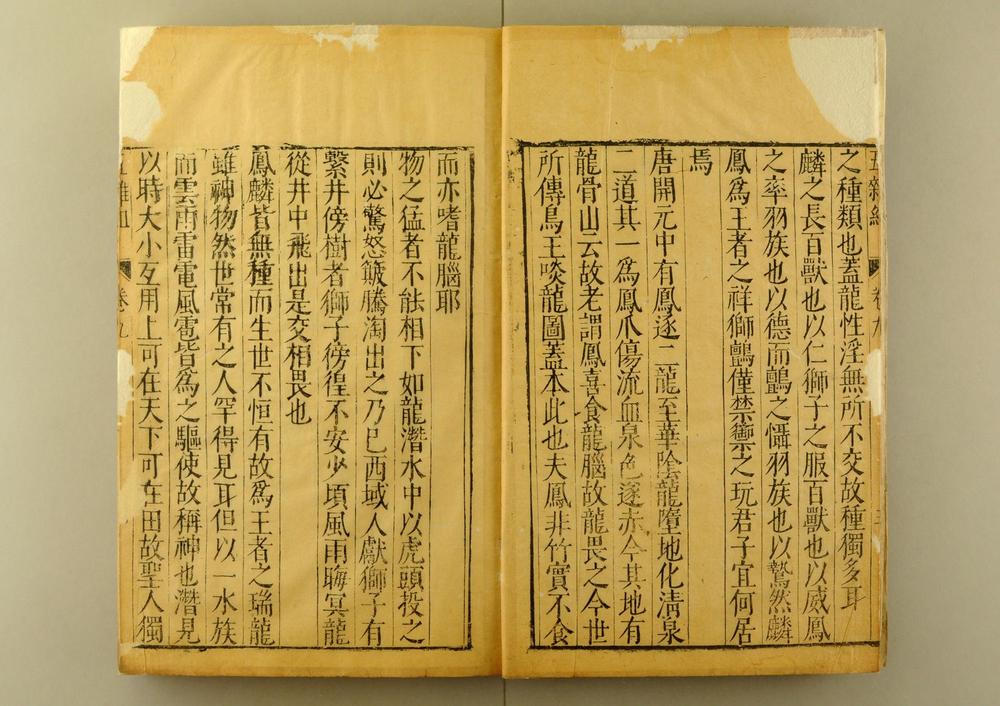 五雜組 卷九
之種類也蓋龍性淫無所不交故種獨多耳
麟之長百獸也以仁獅子之服百獸也以威鳳
之率羽族也以德而鸇之懾羽族也以鷙然麟
鳳爲王者之祥獅鸇僅禁籞之玩君子宜何居
焉
唐開元中有鳳逐二龍至華陰龍墮地化清泉
二道其一爲鳳爪傷流血泉色遂赤今其地有
龍骨山云故老謂鳳喜食龍腦故龍畏之今世
所傳鳥王啖龍圖蓋本此也夫鳳非竹實不食
而亦嗜龍腦耶
物之猛者不能相下如龍潛水中以虎頭投之
則必驚怒簸騰淘出之乃已西域人獻獅子有
繫井傍樹者獅子傍徨不安少頃風雨晦冥龍
從井中飛出是交相畏也
鳳麟皆無種而生世不恒有故爲王者之瑞龍
雖神物然世常有之人罕得見耳但以一水族
而雲雨雷電風雹皆爲之驅使故稱神也潛見
以時大小互用上可在天下可在田故聖人獨
五雜組 卷九